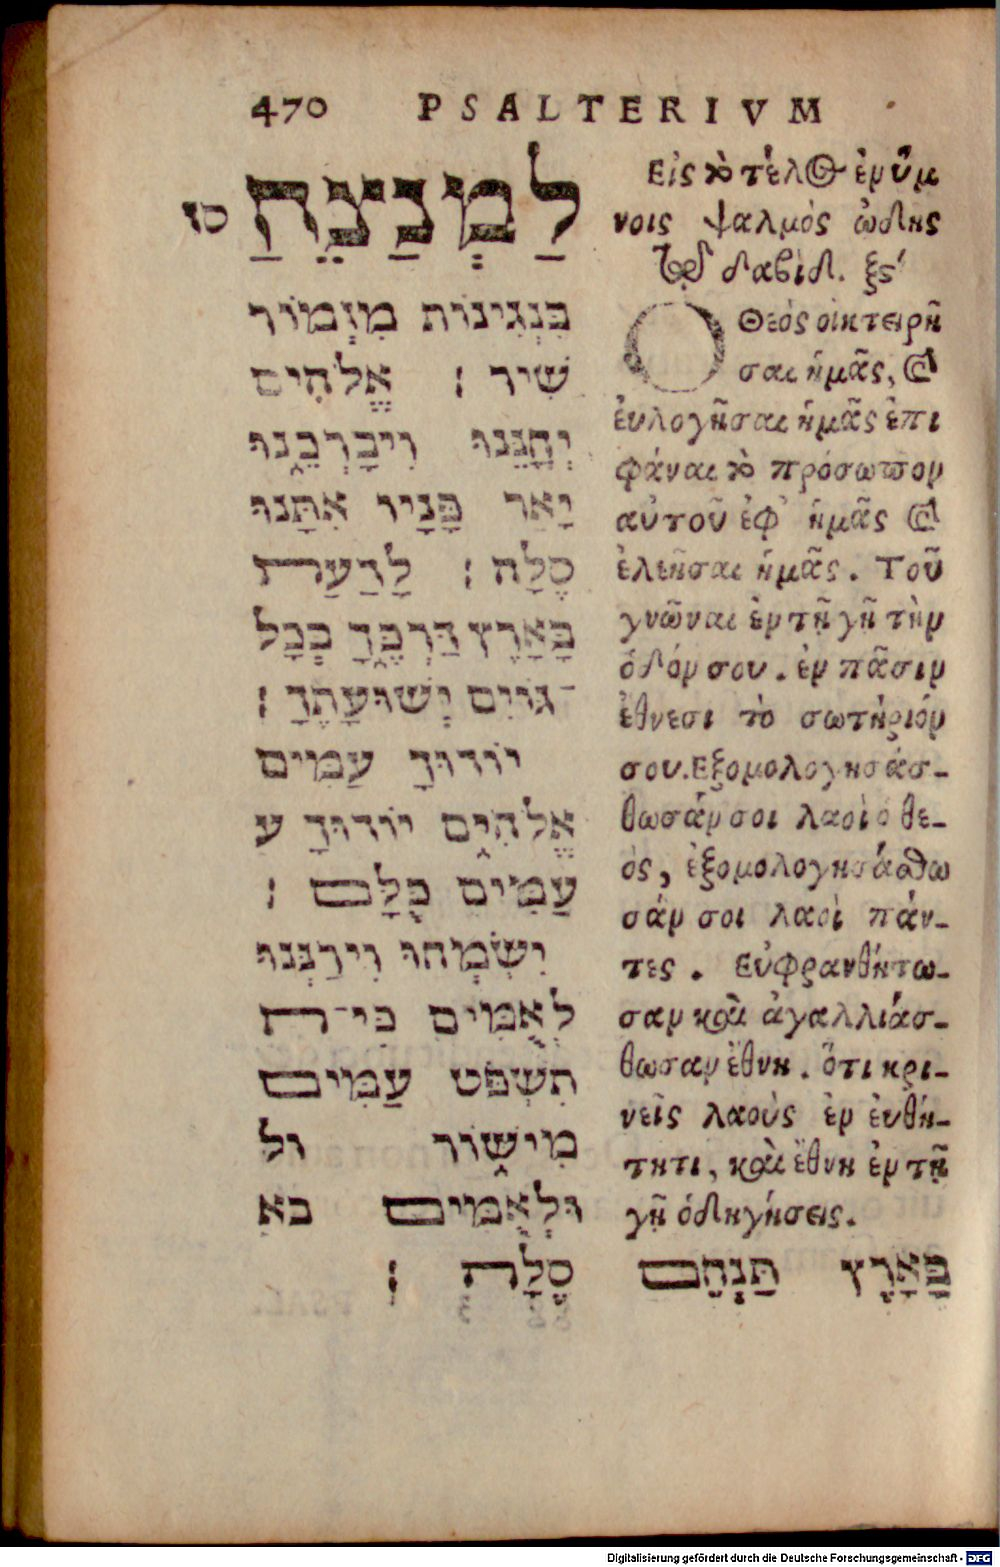 470 PSALTERIVM
סז לַמְנַצֵּחַ
בִּנְגִינוֹת מִזְמוֹר
שִׁיר : אֱלֹהִים
יְחָנֵּנוּ וִיבָרְכֵנוּ
יָאֵר פָּנָיו אִתָּנוּ
סֶלָה : לָדַעַת
בָּאָרֶץ דַּרְכֶּךָ בְּכָל
־גּוֹיִם יְשׁוּעָתֶךָ :
יוֹדוּךָ עַמִּים
אֱלֹהִים יוֹדוּךָ ע
עַמִּים כֻּלָּם :
יִשְׂמְחוּ וִירַנְּנוּ
לְאֻמִּים כִּי־ת
תִשְׁפֹּט עַמִּים
מִישׁוֹר ול
וּלְאֻמִּים בא
בָּאָרֶץ תַּנְחֵם סֶלָה :
Εἰς τὸ τέλος ἐν ὕμ
νοις ψαλμὸς ὠδῆς
τῷ δαβίδ. ξς΄
Ο Θεὸς οἰκτειρῆ
σαι ἡμᾶς, καὶ
ἐυλογῆσαι ἡμᾶς ἐπι
φάναι τὸ πρόσωπον
αὐτοῦ ἐφ᾽ ἡμᾶς καὶ
ἐλεῆσαι ἡμᾶς. Τοῦ
γνῶναι ἐν τῇ γῇ τὴν
ὁδόν σου. ἐν πᾶσιν
ἔθνεσι τὸ σωτήριόν
σου. Εξομολογησάσ-
θωσάν σοι λαοὶ ὁ θε-
ός, ἐξομολογησάσθω
σάν σοι λαοὶ πάν-
τες. Εὐφρανθήτω-
σαν καὶ ἀγαλλιάσ-
θωσαν ἔθνη. ὅτι κρι-
νεῖς λαοὺς ἐν ἐυθύ-
τητι, καὶ ἔθνη ἐν τῇ
γῇ ὁδηγήσεις.
Digitalisierung gefördert durch die Deutsche Forschungsgemeinschaft - DFG